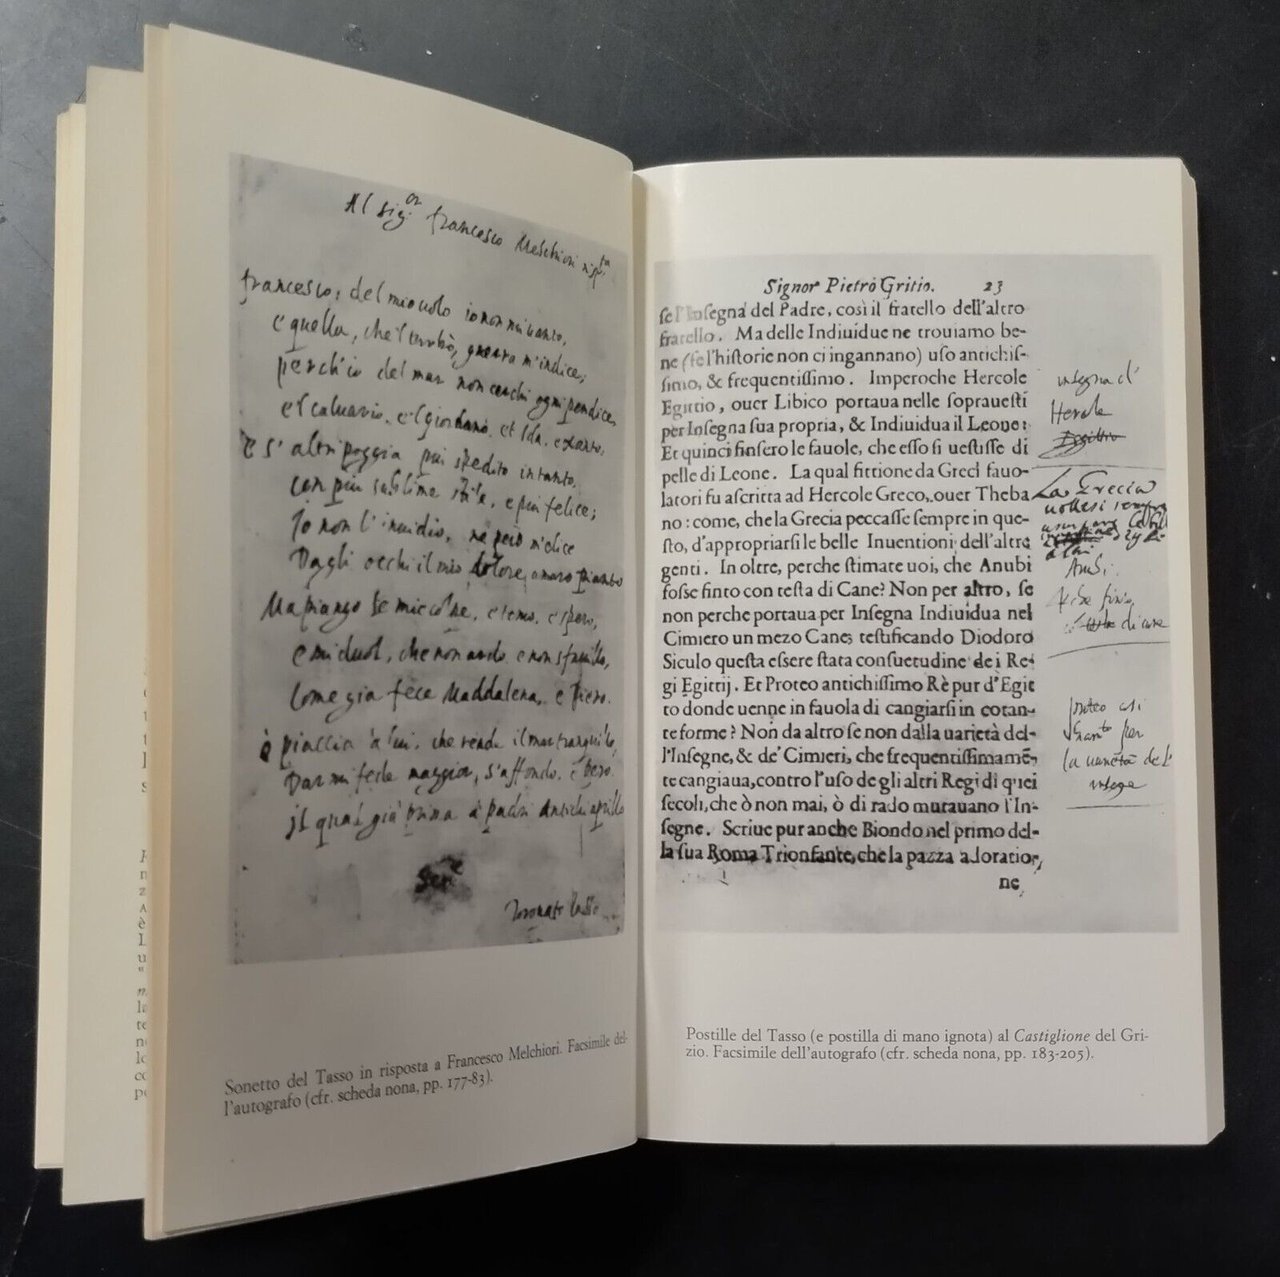 Al Sig.or Francesco Melchiori rispta
Francesco, del mio volo io non mi vanto,
e quella, che 'l turbò, guerra m'indice;
perch'io del mar non cerchi ogni pendice,
e 'l calvario, e 'l giordano, et Ida, e Xanto,
E s'altri poggia più spedito intanto,
con più sublime stile, e più felice;
Io non l'invidio, nè però m'elice
Dagli occhi il mio dolore amaro pianto
Ma piango le mie colpe, e temo, e spero,
e mi duol, che non ardo, e non sfavillo,
Come già fece Maddalena, e Piero.
è piaccia à lui, che rende il mar tranquillo,
Darmi fede maggior, s'affondo, è pero
il qual già prima à padri antichi aprillo
Torquato Tasso
Sonetto del Tasso in risposta a Francesco Melchiori. Facsimile del-
l'autografo (cfr. scheda nona, pp. 177-83).
Signor Pietro Gritio. 23
se l'Insegna del Padre, così il fratello dell'altro
fratello. Ma delle Indiuidue ne trouiamo be-
ne (se l'historie non ci ingannano) uso antichis-
simo, & frequentissimo. Imperoche Hercole
Egittio, ouer Libico portaua nelle soprauesti
per Insegna sua propria, & Indiuidua il Leone:
Et quinci finsero le fauole, che esso si uestisse di
pelle di Leone. La qual fittione da Greci fauo-
latori fu ascritta ad Hercole Greco, ouer Theba
no: come, che la Grecia peccasse sempre in que-
sto, d'appropriarsi le belle Inuentioni dell'altre
genti. In oltre, perche stimate uoi, che Anubi
fosse finto con testa di Cane? Non per altro, se
non perche portaua per Insegna Indiuidua nel
Cimiero un mezo Cane; testificando Diodoro
Siculo questa essere stata consuetudine de i Re-
gi Egittij. Et Proteo antichissimo Rè pur d'Egit
to donde uenne in fauola di cangiarsi in cotan-
te forme? Non da altro se non dalla uarietà del-
l'Insegne, & de' Cimieri, che frequentissimamẽ-
te cangiaua, contro l'uso de gli altri Regi di quei
secoli, che ò non mai, ò di rado mutauano l'In-
segne. Scriue pur anche Biondo nel primo del-
la sua Roma Trionfante, che la pazza adoratio-
ne
insegna d'
Hercole
La Grecia
Anubi
di cane
proteo
per
la varietà del'
insegne
Postille del Tasso (e postilla di mano ignota) al Castiglione del Gri-
zio. Facsimile dell'autografo (cfr. scheda nona, pp. 183-205).